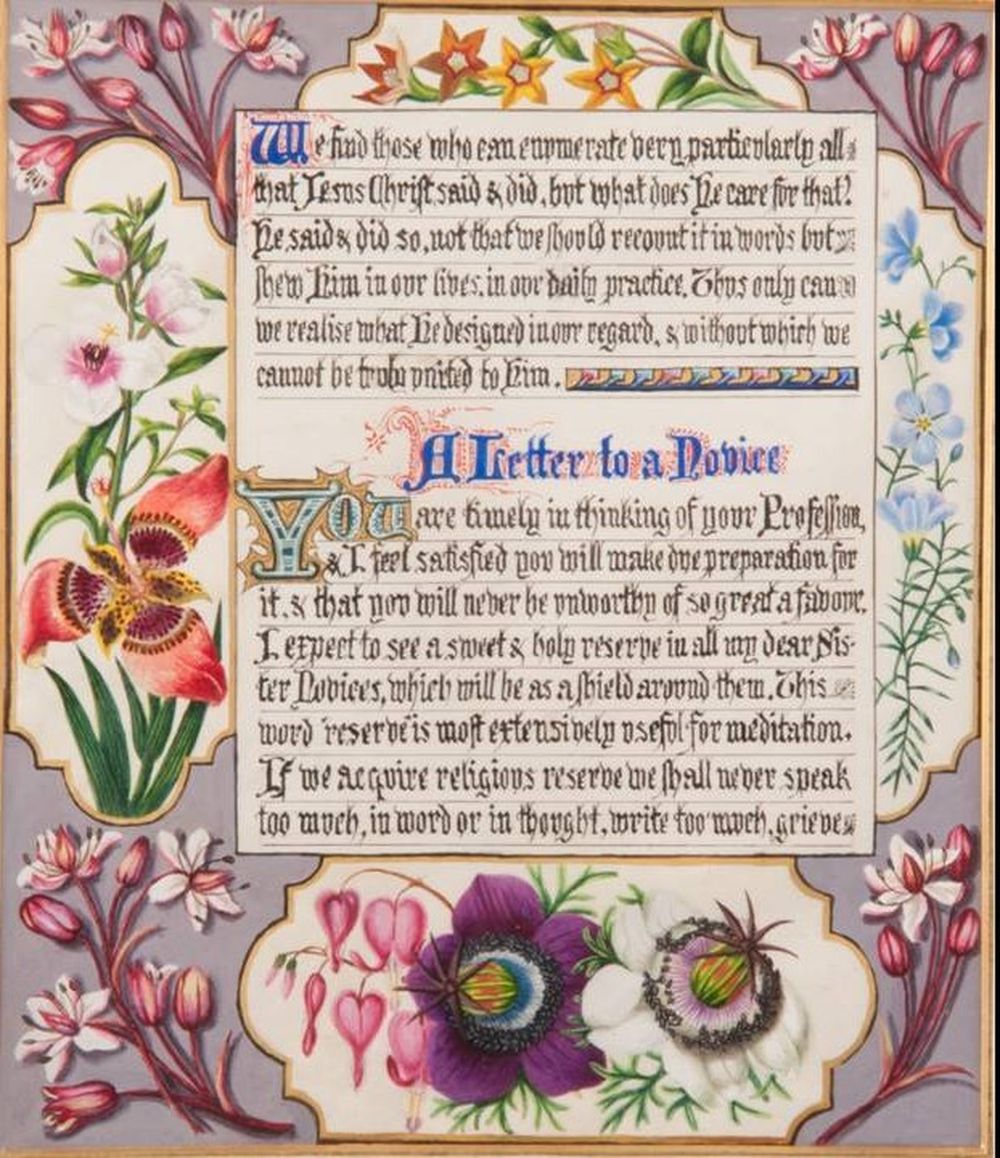 We find those who can enumerate very particularly all
that Jesus Christ said & did, but what does He care for that?
He said & did so, not that we should recount it in words but
shew Him in our lives, in our daily practice. Thus only can
we realise what He designed in our regard, & without which we
cannot be truly united to Him.
A Letter to a Novice
You are timely in thinking of your Profession,
& I feel satisfied you will make due preparation for
it, & that you will never be unworthy of so great a favour.
I expect to see a sweet & holy reserve in all my dear Sis-
ter Novices, which will be as a shield around them. This
word 'reserve' is most extensively useful for meditation.
If we acquire religious reserve we shall never speak
too much, in word or in thought, write too much, grieve